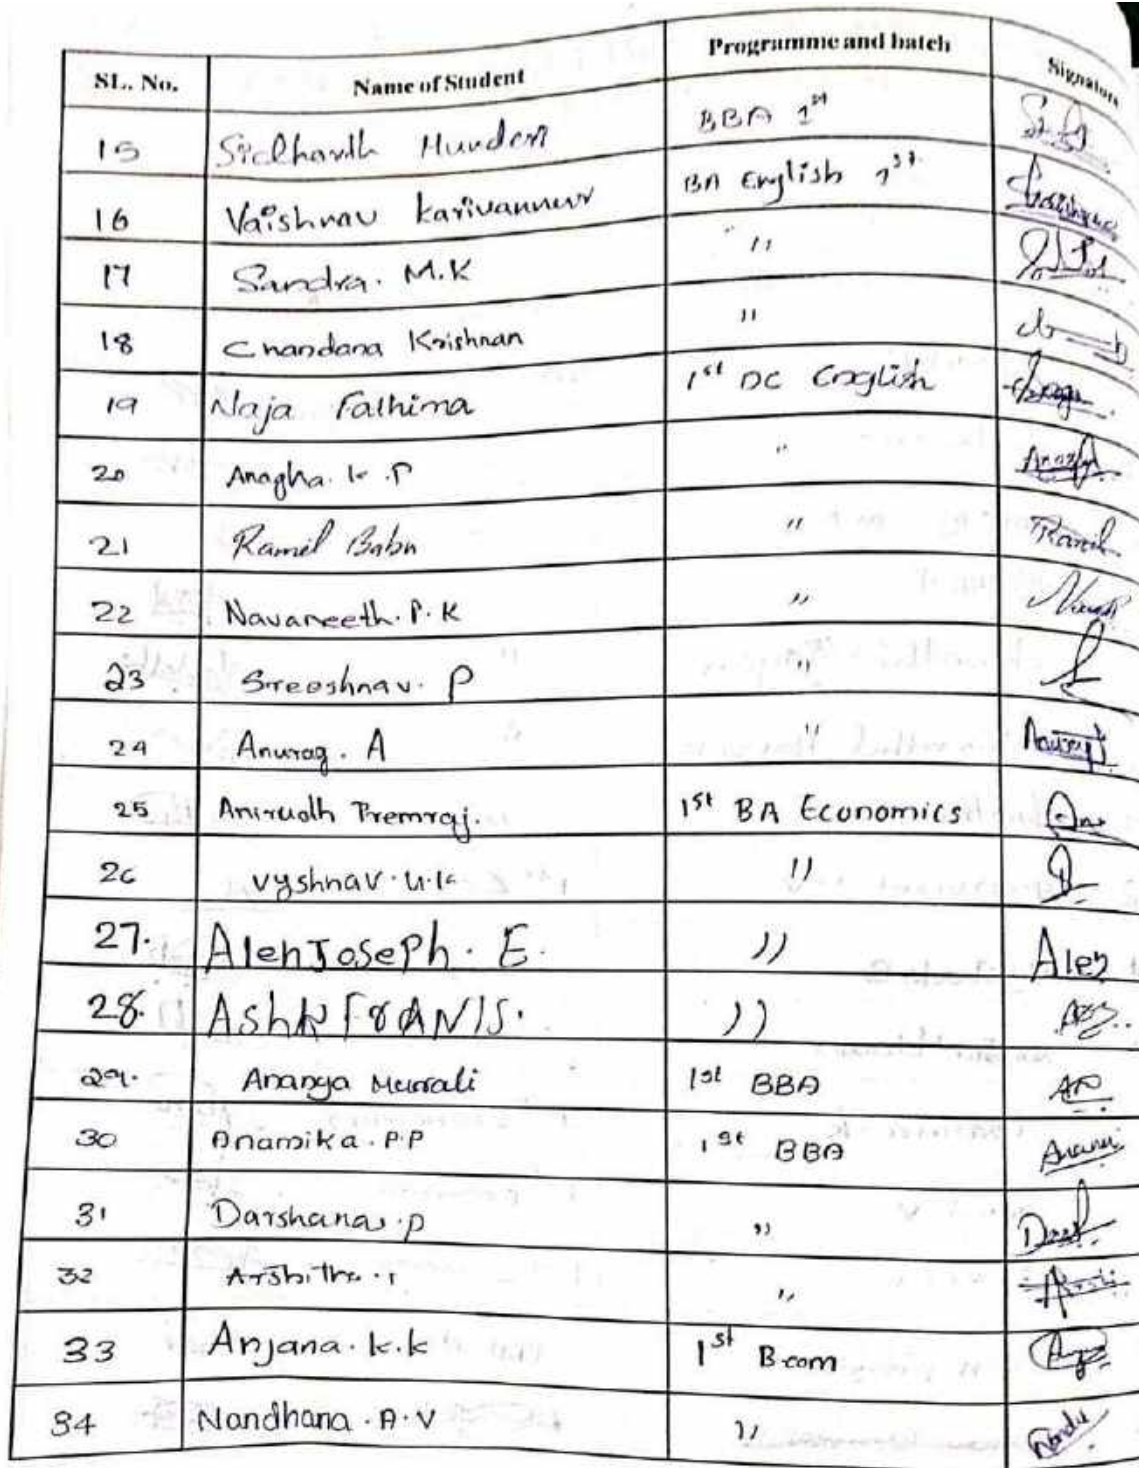 SL. No. Name of Student Programme and batch Signature
15 Sidharth Mundon BBA 1st
16 Vaishnav Karivannur BA English 1st
17 Sandra. M.K "
18 Chandana Krishnan "
19 Naja Fathima 1st DC English
20 Anagha. K.P " Anagha
21 Ramil Babu " Ramil
22 Navaneeth. P. K "
23 Sreeshnav. P "
24 Anurag. A " Anurag
25 Anirudh Premraj. 1st BA Economics
26 vyshnav. u.k "
27. Alen Joseph. E. " Alen
28. "
29. Ananya Murali 1st BBA
30 Anamika. P.P 1st BBA
31 Darshana. P "
32 "
33 Anjana. k.k 1st B.com
34 Nandhana. A. V " Nandu